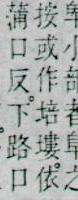 阜小部者阜之
按或作培塿依
蒲口反下路口